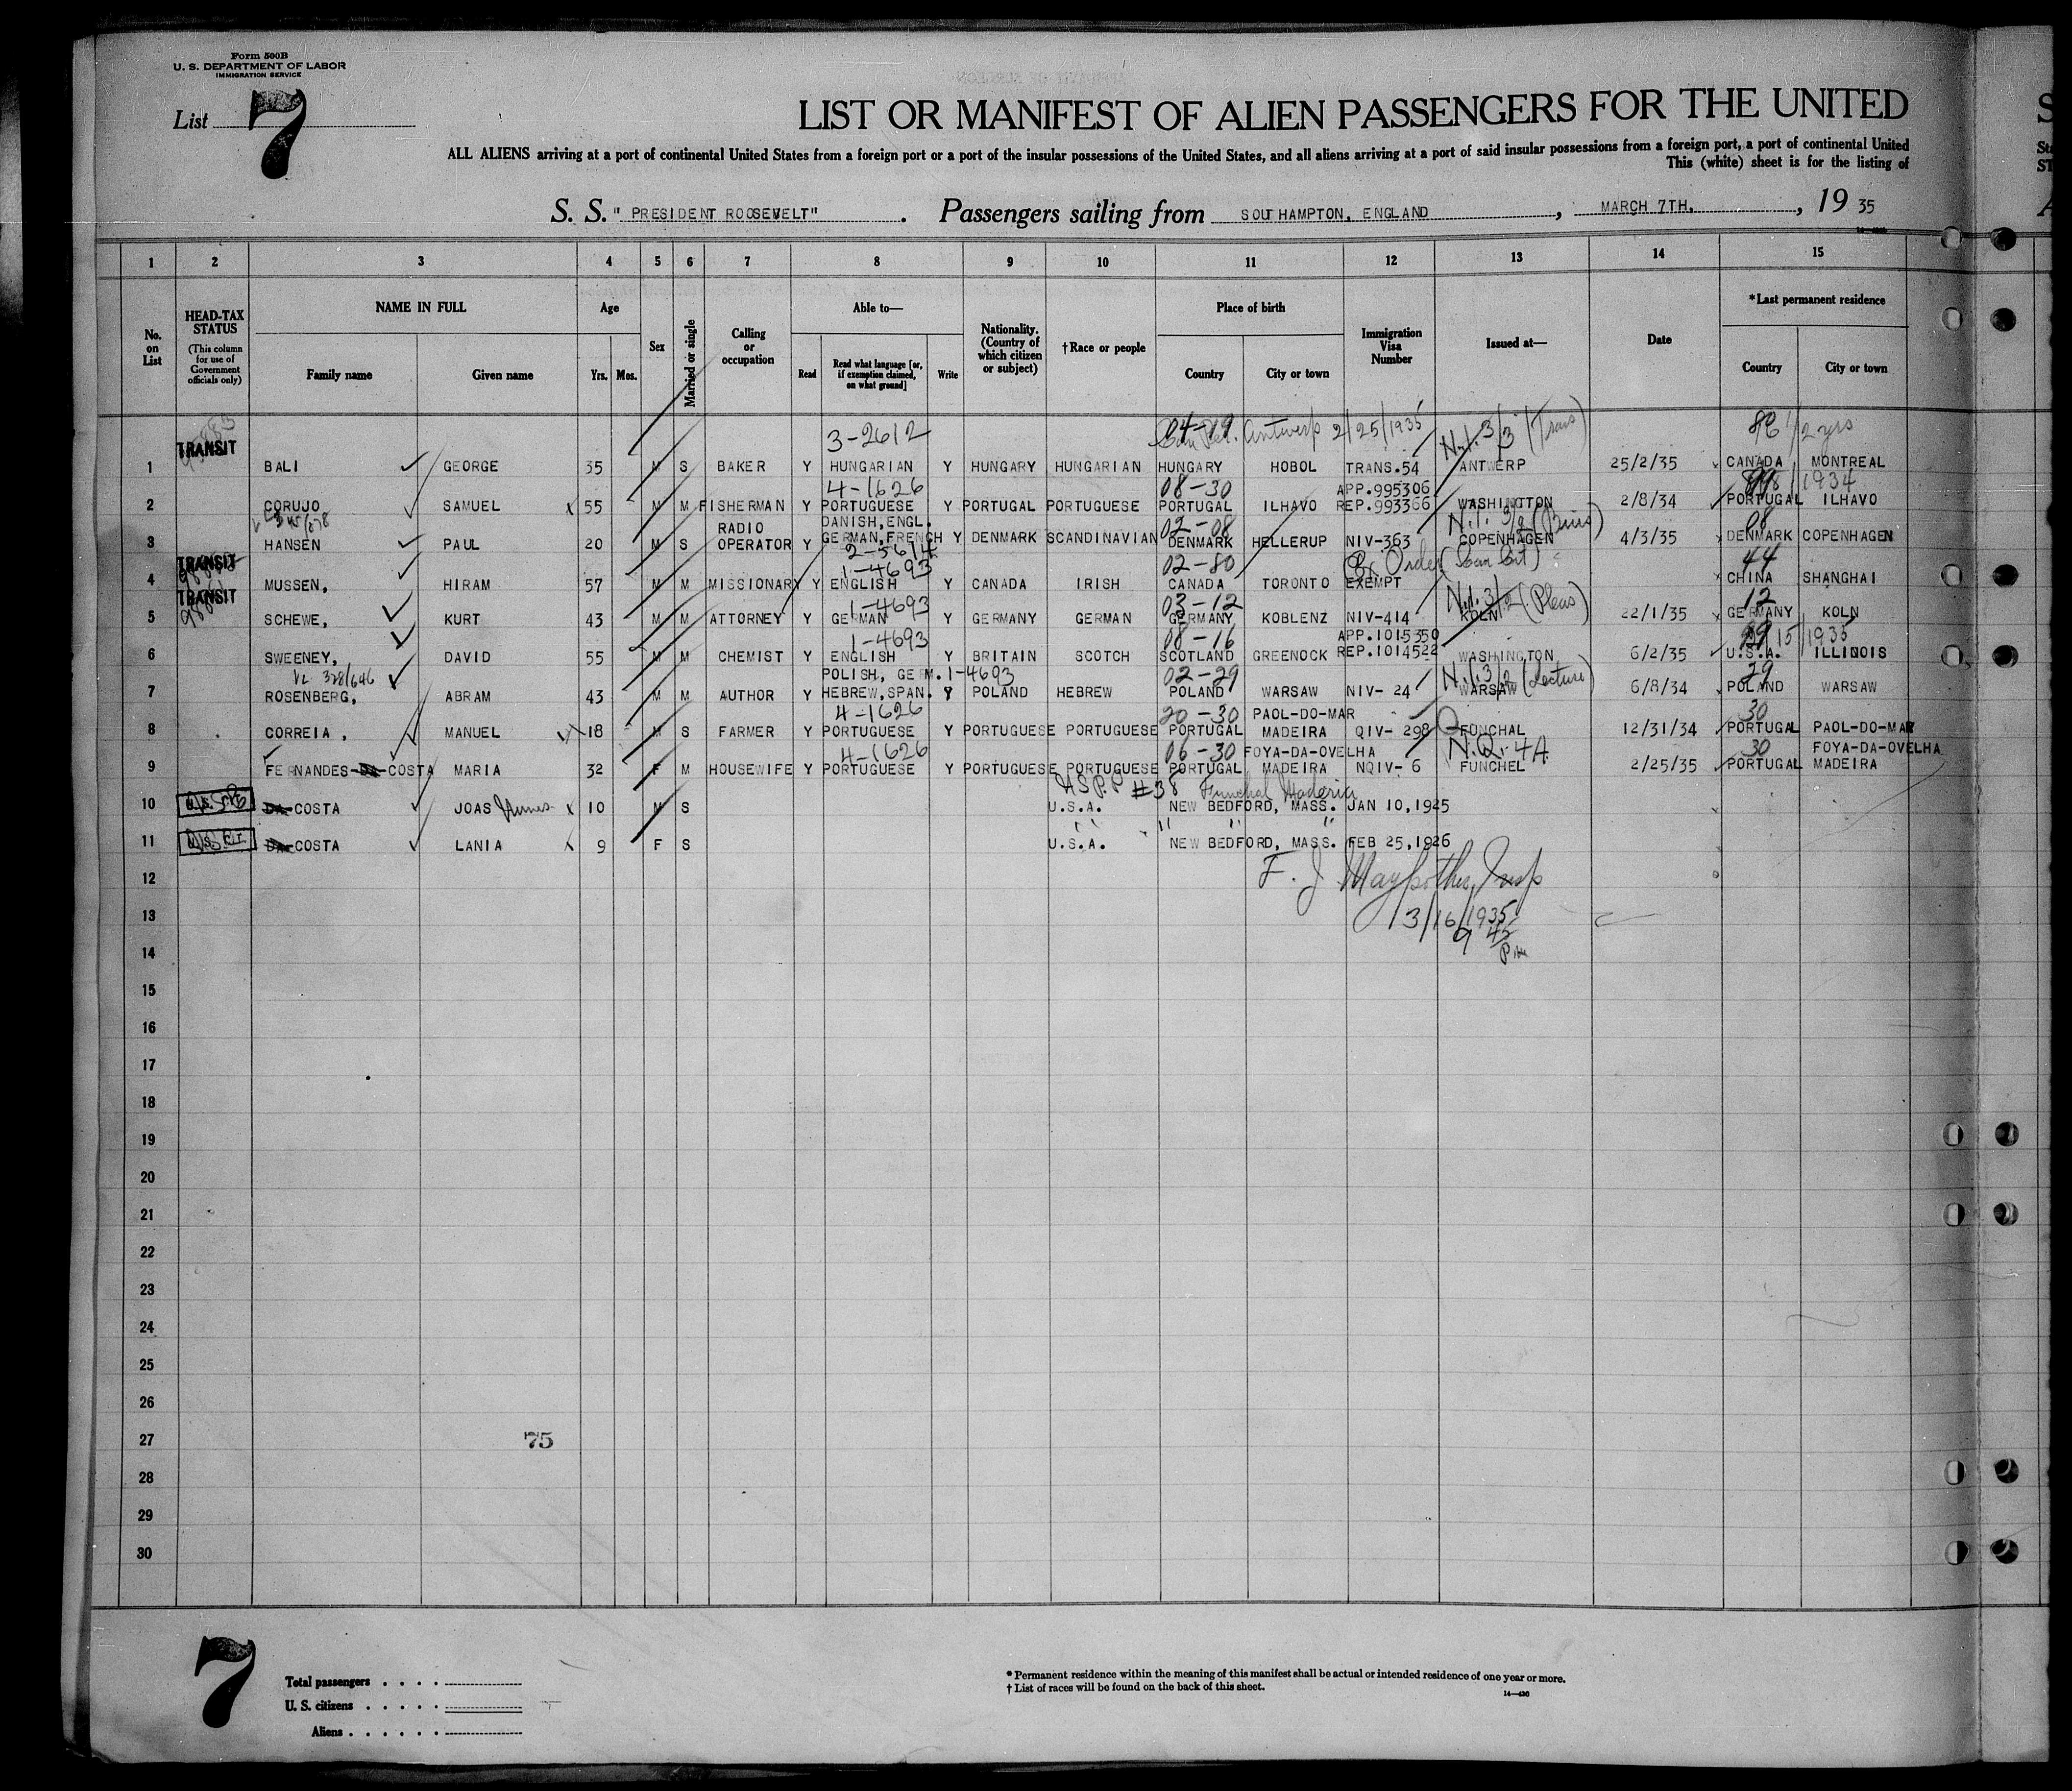 Form 500B
U. S. DEPARTMENT OF LABOR
IMMIGRATION SERVICE
List 7
LIST OR MANIFEST OF ALIEN PASSENGERS FOR THE UNITED
ALL ALIENS arriving at a port of continental United States from a foreign port or a port of the insular possessions of the United States, and all aliens arriving at a port of said insular possessions from a foreign port, a port of continental United
This (white) sheet is for the listing of
S. S. "PRESIDENT ROOSEVELT". Passengers sailing from SOUTHAMPTON, ENGLAND, MARCH 7TH, 19 35
1 2 3 4 5 6 7 8 9 10 11 12 13 14 15
No. on List
HEAD-TAX STATUS
(This column for use of Government officials only)
NAME IN FULL
Family name Given name
Age
Yrs. Mos.
Sex
Married or single
Calling or occupation
Able to—
Read
Read what language [or, if exemption claimed, on what ground]
Write
Nationality. (Country of which citizen or subject)
†Race or people
Place of birth
Country City or town
Immigration Visa Number
Issued at—
Date
*Last permanent residence
Country City or town
3-2612 04-19 Antwerp 2/25/1935 N.I. 3/3 (Trans) 4 1/2 yrs
TRANSIT
1 BALI GEORGE 35 M S BAKER Y HUNGARIAN Y HUNGARY HUNGARIAN HUNGARY HOBOL TRANS.54 ANTWERP 25/2/35 CANADA MONTREAL
4-1626 08-30 APP.995306 1934
2 CORUJO SAMUEL 55 M M FISHERMAN Y PORTUGUESE Y PORTUGAL PORTUGUESE PORTUGAL ILHAVO REP.993366 WASHINGTON 2/8/34 PORTUGAL ILHAVO
RADIO DANISH, ENGL. 02-08 N.I. 3/2 (Buis) 08
3 HANSEN PAUL 20 M S OPERATOR Y GERMAN, FRENCH Y DENMARK SCANDINAVIAN DENMARK HELLERUP NIV-363 COPENHAGEN 4/3/35 DENMARK COPENHAGEN
2-5614
TRANSIT
1-4693 02-80 Order (Can Cit) 44
4 MUSSEN, HIRAM 57 M M MISSIONARY Y ENGLISH Y CANADA IRISH CANADA TORONTO EXEMPT CHINA SHANGHAI
TRANSIT
1-4693 03-12 N.I. 3/2 (Pleas) 12
5 SCHEWE, KURT 43 M M ATTORNEY Y GERMAN Y GERMANY GERMAN GERMANY KOBLENZ NIV-414 KOLN 22/1/35 GERMANY KOLN
1-4693 08-16 APP.1015350 15/1935
6 SWEENEY, DAVID 55 M M CHEMIST Y ENGLISH Y BRITAIN SCOTCH SCOTLAND GREENOCK REP.1014522 WASHINGTON 6/2/35 U.S.A. ILLINOIS
VL 328/646 POLISH, GERM. 1-4693 02-29 N.I. 3/2 (Lecture) 29
7 ROSENBERG, ABRAM 43 M M AUTHOR Y HEBREW, SPAN. Y POLAND HEBREW POLAND WARSAW NIV- 24 WARSAW 6/8/34 POLAND WARSAW
4-1626 20-30 PAOL-DO-MAR 30
8 CORREIA, MANUEL 18 M S FARMER Y PORTUGUESE Y PORTUGUESE PORTUGUESE PORTUGAL MADEIRA QIV- 298 FUNCHAL 12/31/34 PORTUGAL PAOL-DO-MAR
4-1626 06-30 FOYA-DA-OVELHA N.Q.-4A 30 FOYA-DA-OVELHA
9 FERNANDES-DA-COSTA MARIA 32 F M HOUSEWIFE Y PORTUGUESE Y PORTUGUESE PORTUGUESE PORTUGAL MADEIRA NQIV- 6 FUNCHEL 2/25/35 PORTUGAL MADEIRA
#38 Funchal Maderia
10 U.S. DA COSTA JOAS 10 M S U.S.A. NEW BEDFORD, MASS. JAN 10,1925
11 U.S. DA COSTA LANIA 9 F S U.S.A. NEW BEDFORD, MASS. FEB 25,1926
12
13 3/16/1935
14 9 45 Pm
15
16
17
18
19
20
21
22
23
24
25
26
27 75
28
29
30
7
Total passengers
U. S. citizens
Aliens
* Permanent residence within the meaning of this manifest shall be actual or intended residence of one year or more.
† List of races will be found on the back of this sheet.